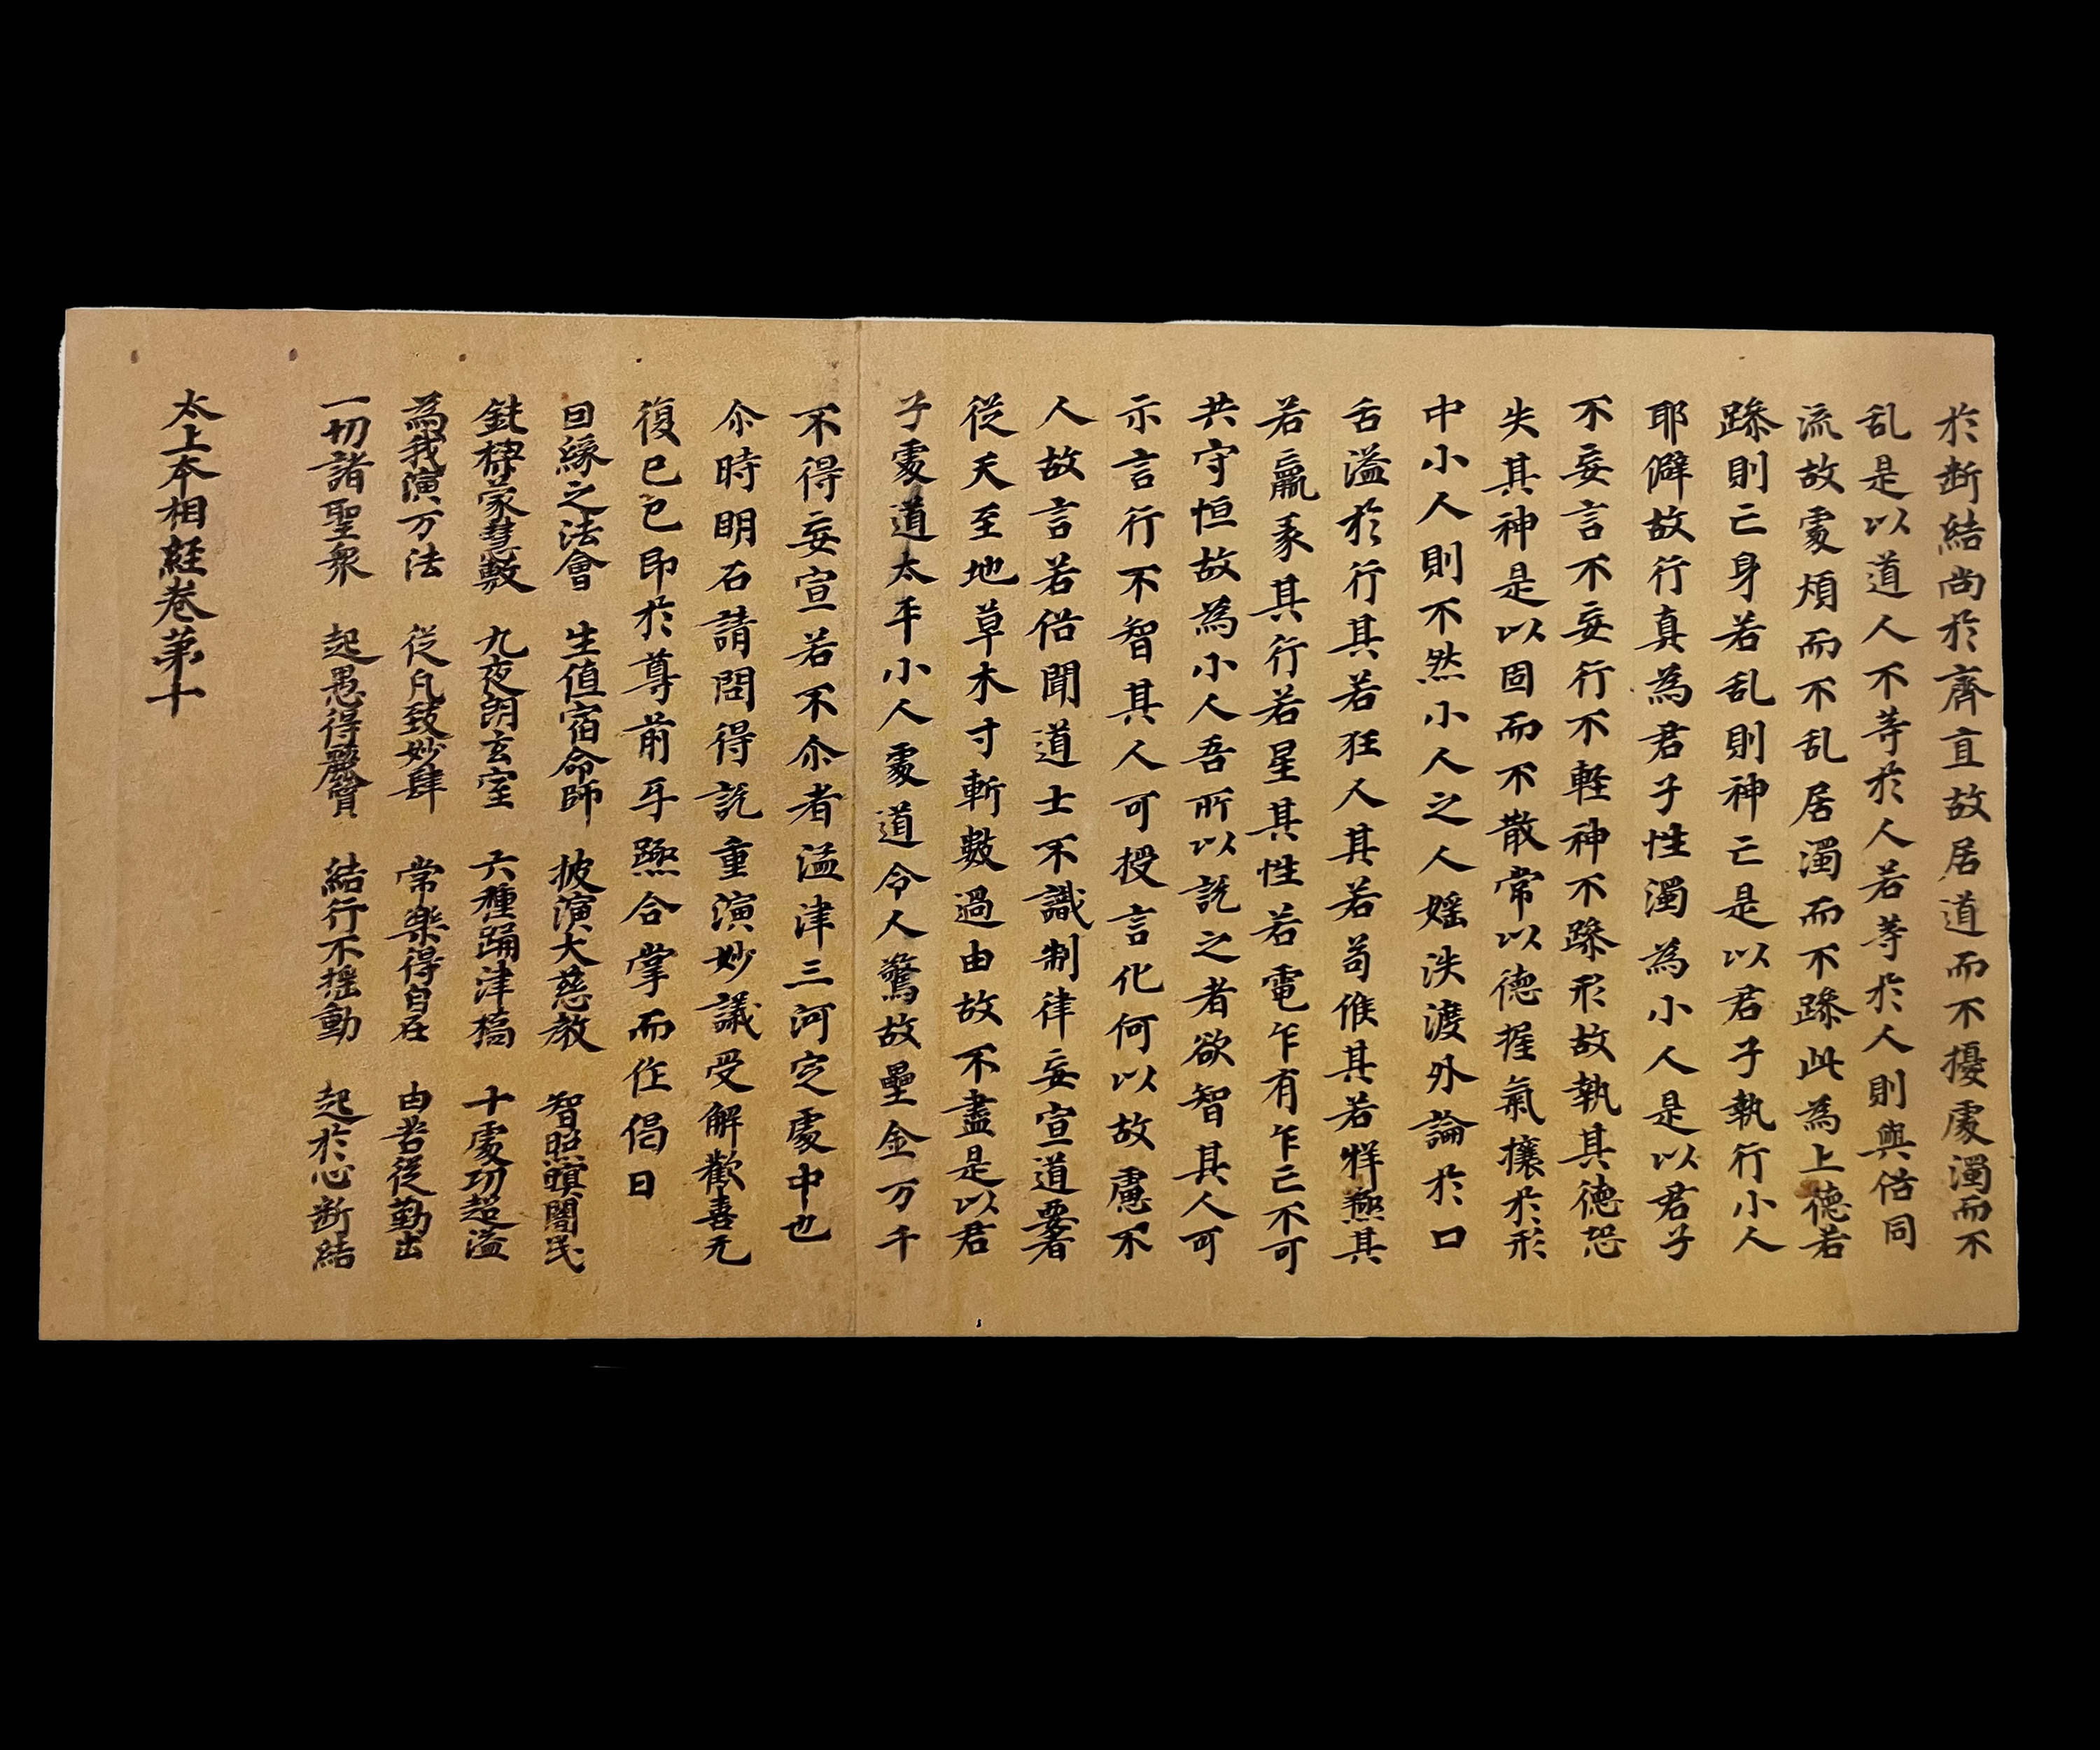 於断結尚於齊直故居道而不擾處濁而不
乱是以道人不等於人若等於人則與俗同
流故處煩而不乱居濁而不躁此為上德若
躁則亡身若乱則神亡是以君子執行小人
耶僻故行真為君子性濁為小人是以君子
不妄言不妄行不輕神不躁形故執其德恐
失其神是以固而不散常以德握氣攘於形
中小人則不然小人之人婬泆渡外論於口
舌溢於行其若狂人其若苟其若其
若其行若星其性若電乍有乍亡不可
共守恒故為小人吾所以説之者欲智其人可
示言行不智其人可授言化何以故慮不
人故言若俗聞道士不識制律妄宣道要者
從天至地草木寸斬數過由故不盡是以君
子處道太平小人處道令人驚故壘金万千
不得妄宣若不尒者溢津三河定處中也
尒時明石請問得説重演妙議受解歡喜无
復已已即於尊前合掌而作偈曰
回緣之法會 生值宿命師 披演大慈教 智照暝闇民
蒙慧數 九夜朗玄室 六種踊津 十處功超溢
為我演万法 從凡致妙肆 常樂得自在 由苦從勤出
一切諸聖衆 起愚得麗質 結行不摇動 起於心断結
太上本相經卷第十